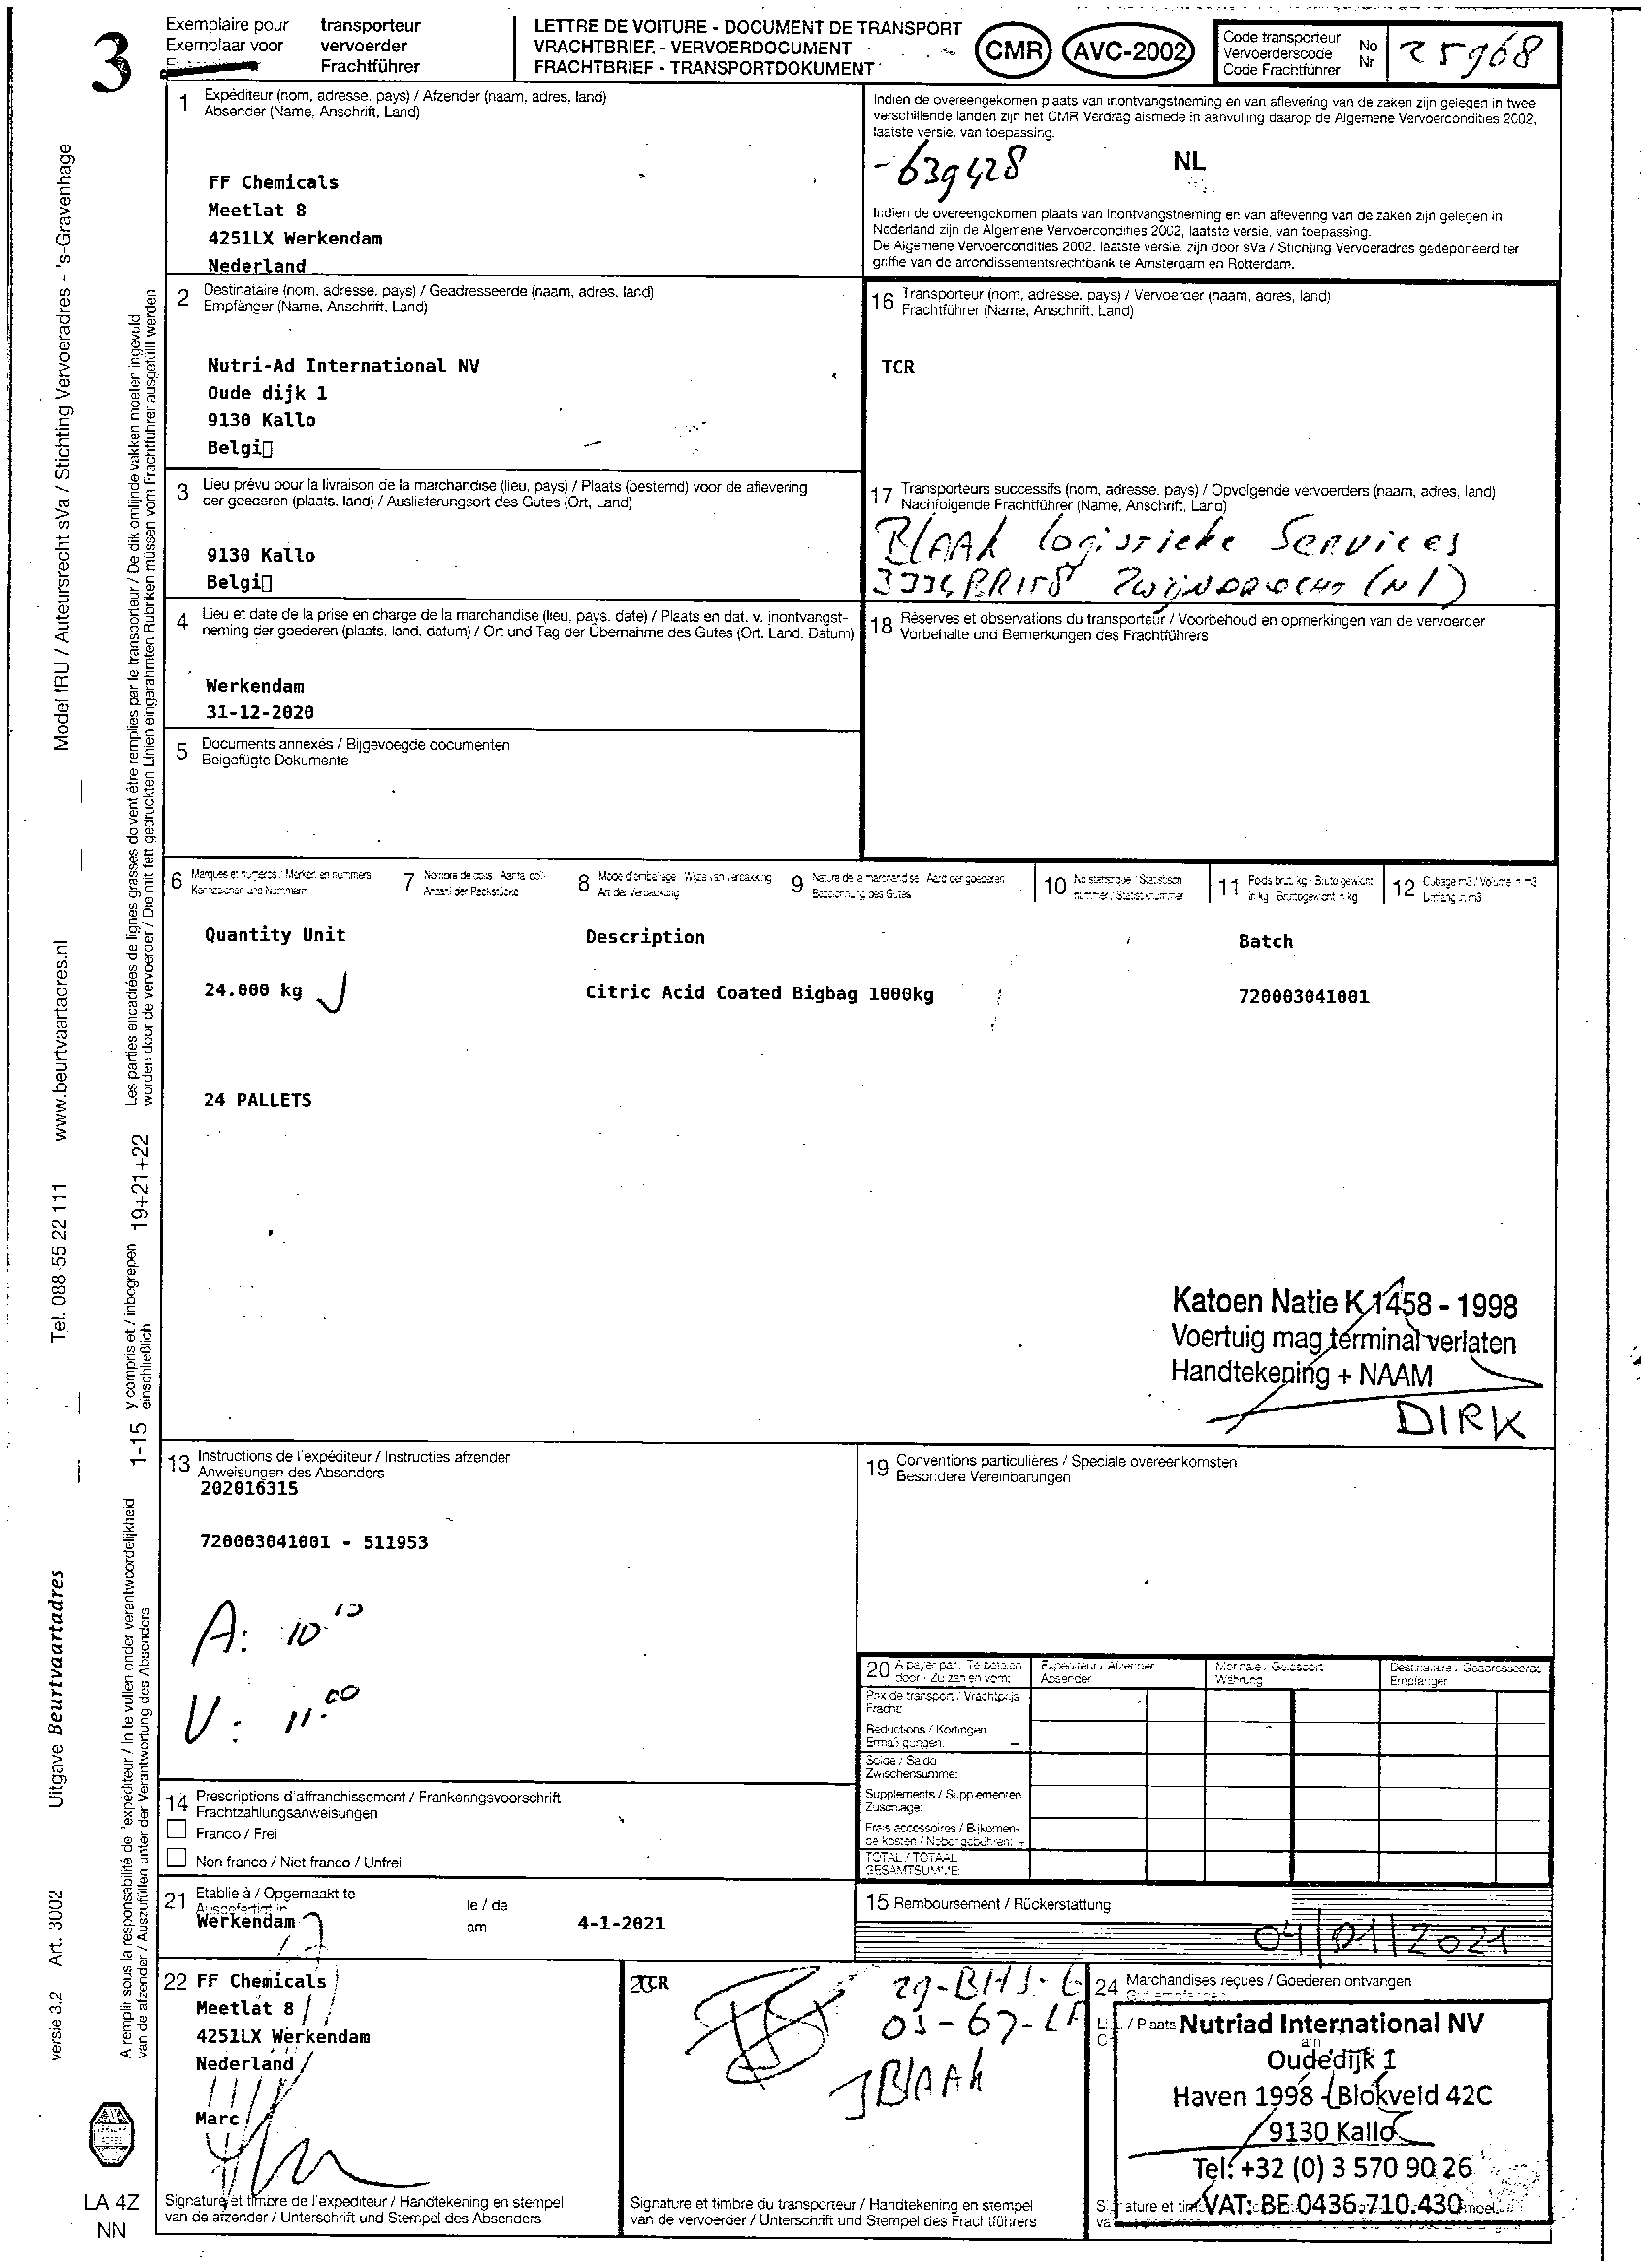 3
Exemplaire pour transporteur
Exemplaar voor vervoerder
Frachtführer
LETTRE DE VOITURE - DOCUMENT DE TRANSPORT
VRACHTBRIEF - VERVOERDOCUMENT
FRACHTBRIEF - TRANSPORTDOKUMENT
CMR
AVC-2002
Code transporteur
Vervoerderscode
Code Frachtführer
No
Nr
25968
1 Expéditeur (nom, adresse, pays) / Afzender (naam, adres, land)
Absender (Name, Anschrift, Land)
FF Chemicals
Meetlat 8
4251LX Werkendam
Nederland
Indien de overeengekomen plaats van inontvangstneming en van aflevering van de zaken zijn gelegen in twee
verschillende landen zijn het CMR Verdrag alsmede in aanvulling daarop de Algemene Vervoercondities 2002,
laatste versie, van toepassing.
-639428
NL
Indien de overeengekomen plaats van inontvangstneming en van aflevering van de zaken zijn gelegen in
Nederland zijn de Algemene Vervoercondities 2002, laatste versie, van toepassing.
De Algemene Vervoercondities 2002, laatste versie, zijn door sVa / Stichting Vervoeradres gedeponeerd ter
griffie van de arrondissementsrechtbank te Amsterdam en Rotterdam.
2 Destinataire (nom, adresse, pays) / Geadresseerde (naam, adres, land)
Empfänger (Name, Anschrift, Land)
Nutri-Ad International NV
Oude dijk 1
9130 Kallo
Belgi▯
16 Transporteur (nom, adresse, pays) / Vervoerder (naam, adres, land)
Frachtführer (Name, Anschrift, Land)
TCR
3 Lieu prévu pour la livraison de la marchandise (lieu, pays) / Plaats (bestemd) voor de aflevering
der goederen (plaats, land) / Auslieferungsort des Gutes (Ort, Land)
9130 Kallo
Belgi▯
17 Transporteurs successifs (nom, adresse, pays) / Opvolgende vervoerders (naam, adres, land)
Nachfolgende Frachtführer (Name, Anschrift, Land)
BLAAK Logistieke Services
3334BR158 Zwijndrecht (Nl)
4 Lieu et date de la prise en charge de la marchandise (lieu, pays, date) / Plaats en dat. v. inontvangst-
neming der goederen (plaats, land, datum) / Ort und Tag der Übernahme des Gutes (Ort, Land, Datum)
Werkendam
31-12-2020
18 Réserves et observations du transporteur / Voorbehoud en opmerkingen van de vervoerder
Vorbehalte und Bemerkungen des Frachtführers
5 Documents annexés / Bijgevoegde documenten
Beigefügte Dokumente
6 Marques et numéros / Merken en nummers
Kennzeichen und Nummern
7 Nombre de colis / Aantal colli
Anzahl der Packstücke
8 Mode d'emballage / Wijze van verpakking
Art der Verpackung
9 Nature de la marchandise / Aard der goederen
Bezeichnung des Gutes
10 No statistique / Statistisch
nummer / Statistiknummer
11 Poids brut, kg / Bruto gewicht
in kg / Bruttogewicht in kg
12 Cubage m3 / Volume in m3
Umfang in m3
Quantity Unit Description Batch
24.000 kg Citric Acid Coated Bigbag 1000kg 720003041001
24 PALLETS
Katoen Natie K 1458 - 1998
Voertuig mag terminal verlaten
Handtekening + NAAM
DIRK
13 Instructions de l'expéditeur / Instructies afzender
Anweisungen des Absenders
202016315
720003041001 - 511953
A: 10.10
V: 11.00
19 Conventions particulières / Speciale overeenkomsten
Besondere Vereinbarungen
20 A payer par / Te betalen
door / Zu zahlen vom:
Expéditeur / Afzender
Absender
Monnaie / Geldsoort
Währung
Destinataire / Geadresseerde
Empfänger
Prix de transport / Vrachtprijs
Fracht:
Réductions / Kortingen
Ermäßigungen: -
Solde / Saldo
Zwischensumme:
Suppléments / Supplementen
Zuschläge:
Frais accessoires / Bijkomen-
de kosten / Nebengebühren: +
TOTAL / TOTAAL
GESAMTSUMME:
14 Prescriptions d'affranchissement / Frankeringsvoorschrift
Frachtzahlungsanweisungen
Franco / Frei
Non franco / Niet franco / Unfrei
21 Etablie à / Opgemaakt te
Ausgefertigt in
Werkendam
le / de
am
4-1-2021
15 Remboursement / Rückerstattung
04/01/2021
22 FF Chemicals
Meetlat 8
4251LX Werkendam
Nederland
Marc
Signature et timbre de l'expéditeur / Handtekening en stempel
van de afzender / Unterschrift und Stempel des Absenders
TCR
03-67-LF
JBLAAK
Signature et timbre du transporteur / Handtekening en stempel
van de vervoerder / Unterschrift und Stempel des Frachtführers
24 Marchandises reçues / Goederen ontvangen
/ Plaats
am
Nutriad International NV
Oudedijk 1
Haven 1998 - Blokveld 42C
9130 Kallo
Tel: +32 (0) 3 570 90 26
VAT: BE 0436.710.430
Model IRU / Auteursrecht sVa / Stichting Vervoeradres - 's-Gravenhage
www.beurtvaartadres.nl
Tel. 088-55 22 111
Uitgave Beurtvaartadres
Art. 3002
versie 3.2
Les parties encadrées de lignes grasses doivent être remplies par le transporteur / De dik omlijnde vakken moeten ingevuld
worden door de vervoerder / Die mit fett gedruckten Linien eingerahmten Rubriken müssen vom Frachtführer ausgefüllt werden
19+21+22
y compris et / inbegrepen
einschließlich
1-15
A remplir sous la responsabilité de l'expéditeur / In te vullen onder verantwoordelijkheid
van de afzender / Auszufüllen unter der Verantwortung des Absenders
LA 4Z
NN